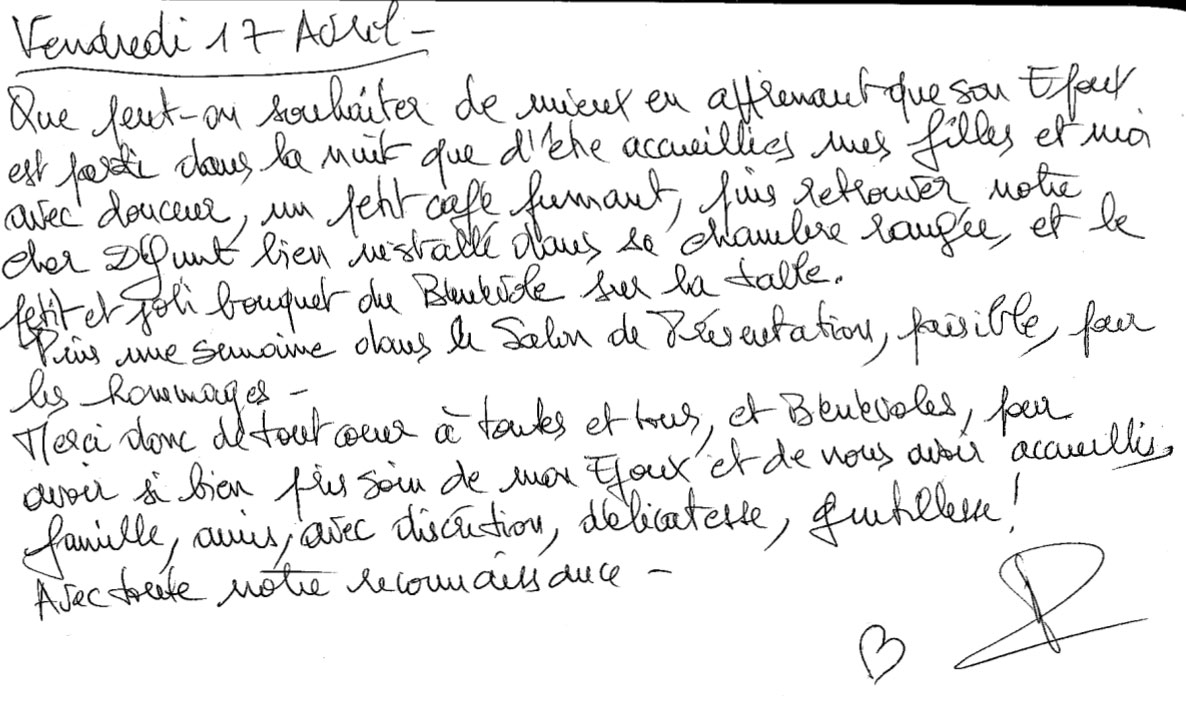 Vendredi 17 Avril -
Que peut-on souhaiter de mieux en apprenant que son Epoux
est parti dans la nuit que d'être accueillies mes filles et moi
avec douceur, un petit café fumant, puis retrouver notre
cher Défunt bien installé dans sa chambre rangée, et le
petit et joli bouquet du Bénévole sur la table.
Puis une semaine dans le Salon de Présentation, paisible, pour
les hommages -
Merci donc de tout coeur à toutes et tous, et Bénévoles, pour
avoir si bien pris soin de mon Epoux et de nous avoir accueillis,
famille, amis, avec discrétion, délicatesse, gentillesse !
Avec toute notre reconnaissance -